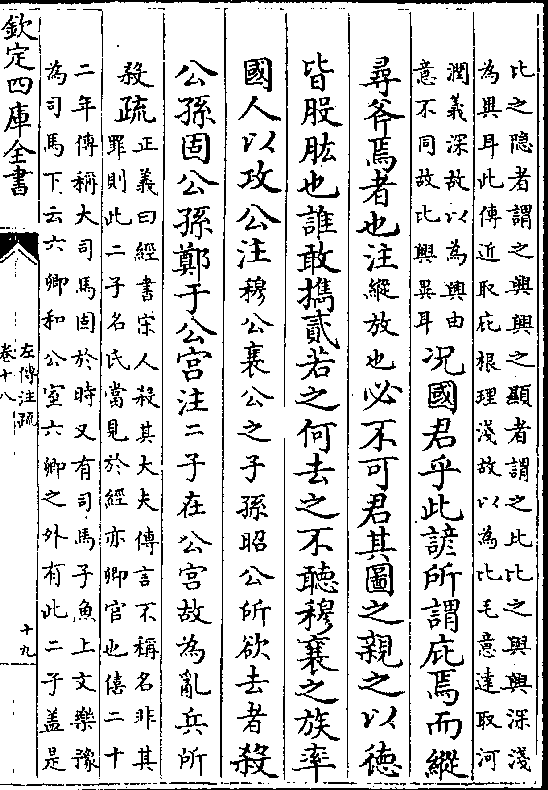 比之隠者謂之興興之顯者謂之比比之與興深淺
為異耳此傳近取庇根理淺故以為比毛意逺取河
潤義深故以為興由
意不同故比興異耳
况國君乎此諺所謂庇焉而縱
尋斧焉者也注縱放也必不可君其圖之親之以徳
皆股肱也誰敢攜貳若之何去之不聽穆襄之族率
國人以攻公注穆公襄公之子孫昭公所欲去者殺
公孫固公孫鄭于公宫注二子在公宫故為亂兵所
殺疏
正義曰經書宋人殺其大夫傳言不稱名非其
罪則此二子名氏當見於經亦卿官也僖二十
二年傳稱大司馬固於時又有司馬子魚上文樂豫
為司馬下云六卿和公室六卿之外有此二子盖是
欽定四庫全書
左傳注疏
卷十八
十九